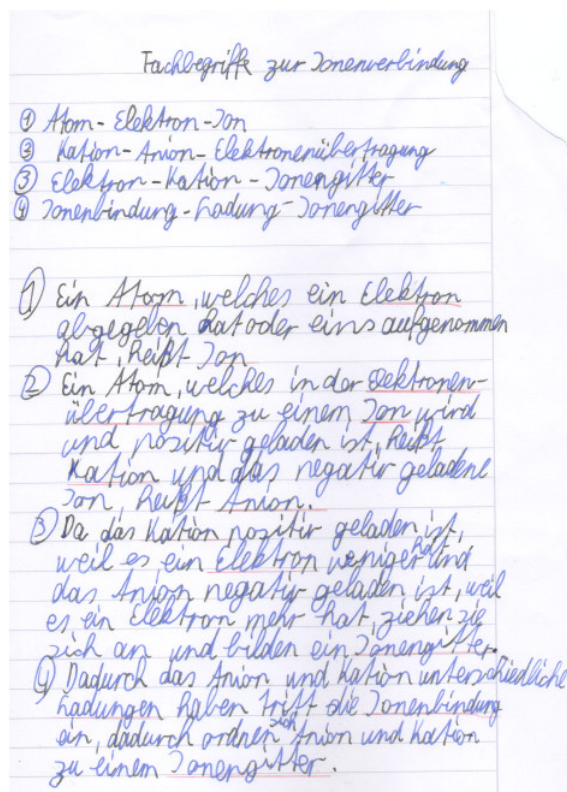 Fachbegriffe zur Ionenverbindung
① Atom - Elektron - Ion
② Kation - Anion - Elektronenübertragung
③ Elektron - Kation - Ionengitter
④ Ionenbindung - Ladung - Ionengitter
① Ein Atom, welches ein Elektron
abgegeben hat oder eins aufgenommen
hat, heißt Ion
② Ein Atom, welches in der Elektronen-
übertragung zu einem Ion wird
und positiv geladen ist, heißt
Kation und das negativ geladene
Ion, heißt Anion.
③ Da das Kation positiv geladen ist,
weil es ein Elektron weniger hat und
das Anion negativ geladen ist, weil
es ein Elektron mehr hat, ziehen sie
sich an und bilden ein Ionengitter.
④ Dadurch das Anion und Kation unterschiedliche
Ladungen haben tritt die Ionenbindung
ein, dadurch ordnen sich Anion und Kation
zu einem Ionengitter.